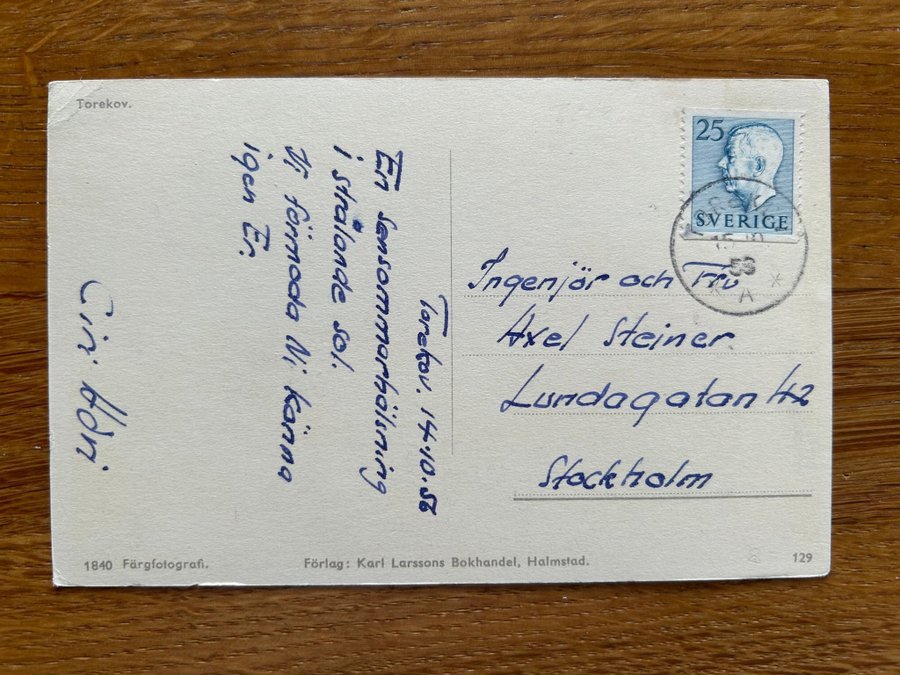 Torekov.
Torekov. 14.10.56
En sensommarhälsning
i strålande sol.
Vi förmoda Ni känna
igen Er.
25
SVERIGE
15 10
Ingenjör och Fru
Axel Steiner.
Lundagatan 42
Stockholm
1840 Färgfotografi.
Förlag: Karl Larssons Bokhandel, Halmstad.
129